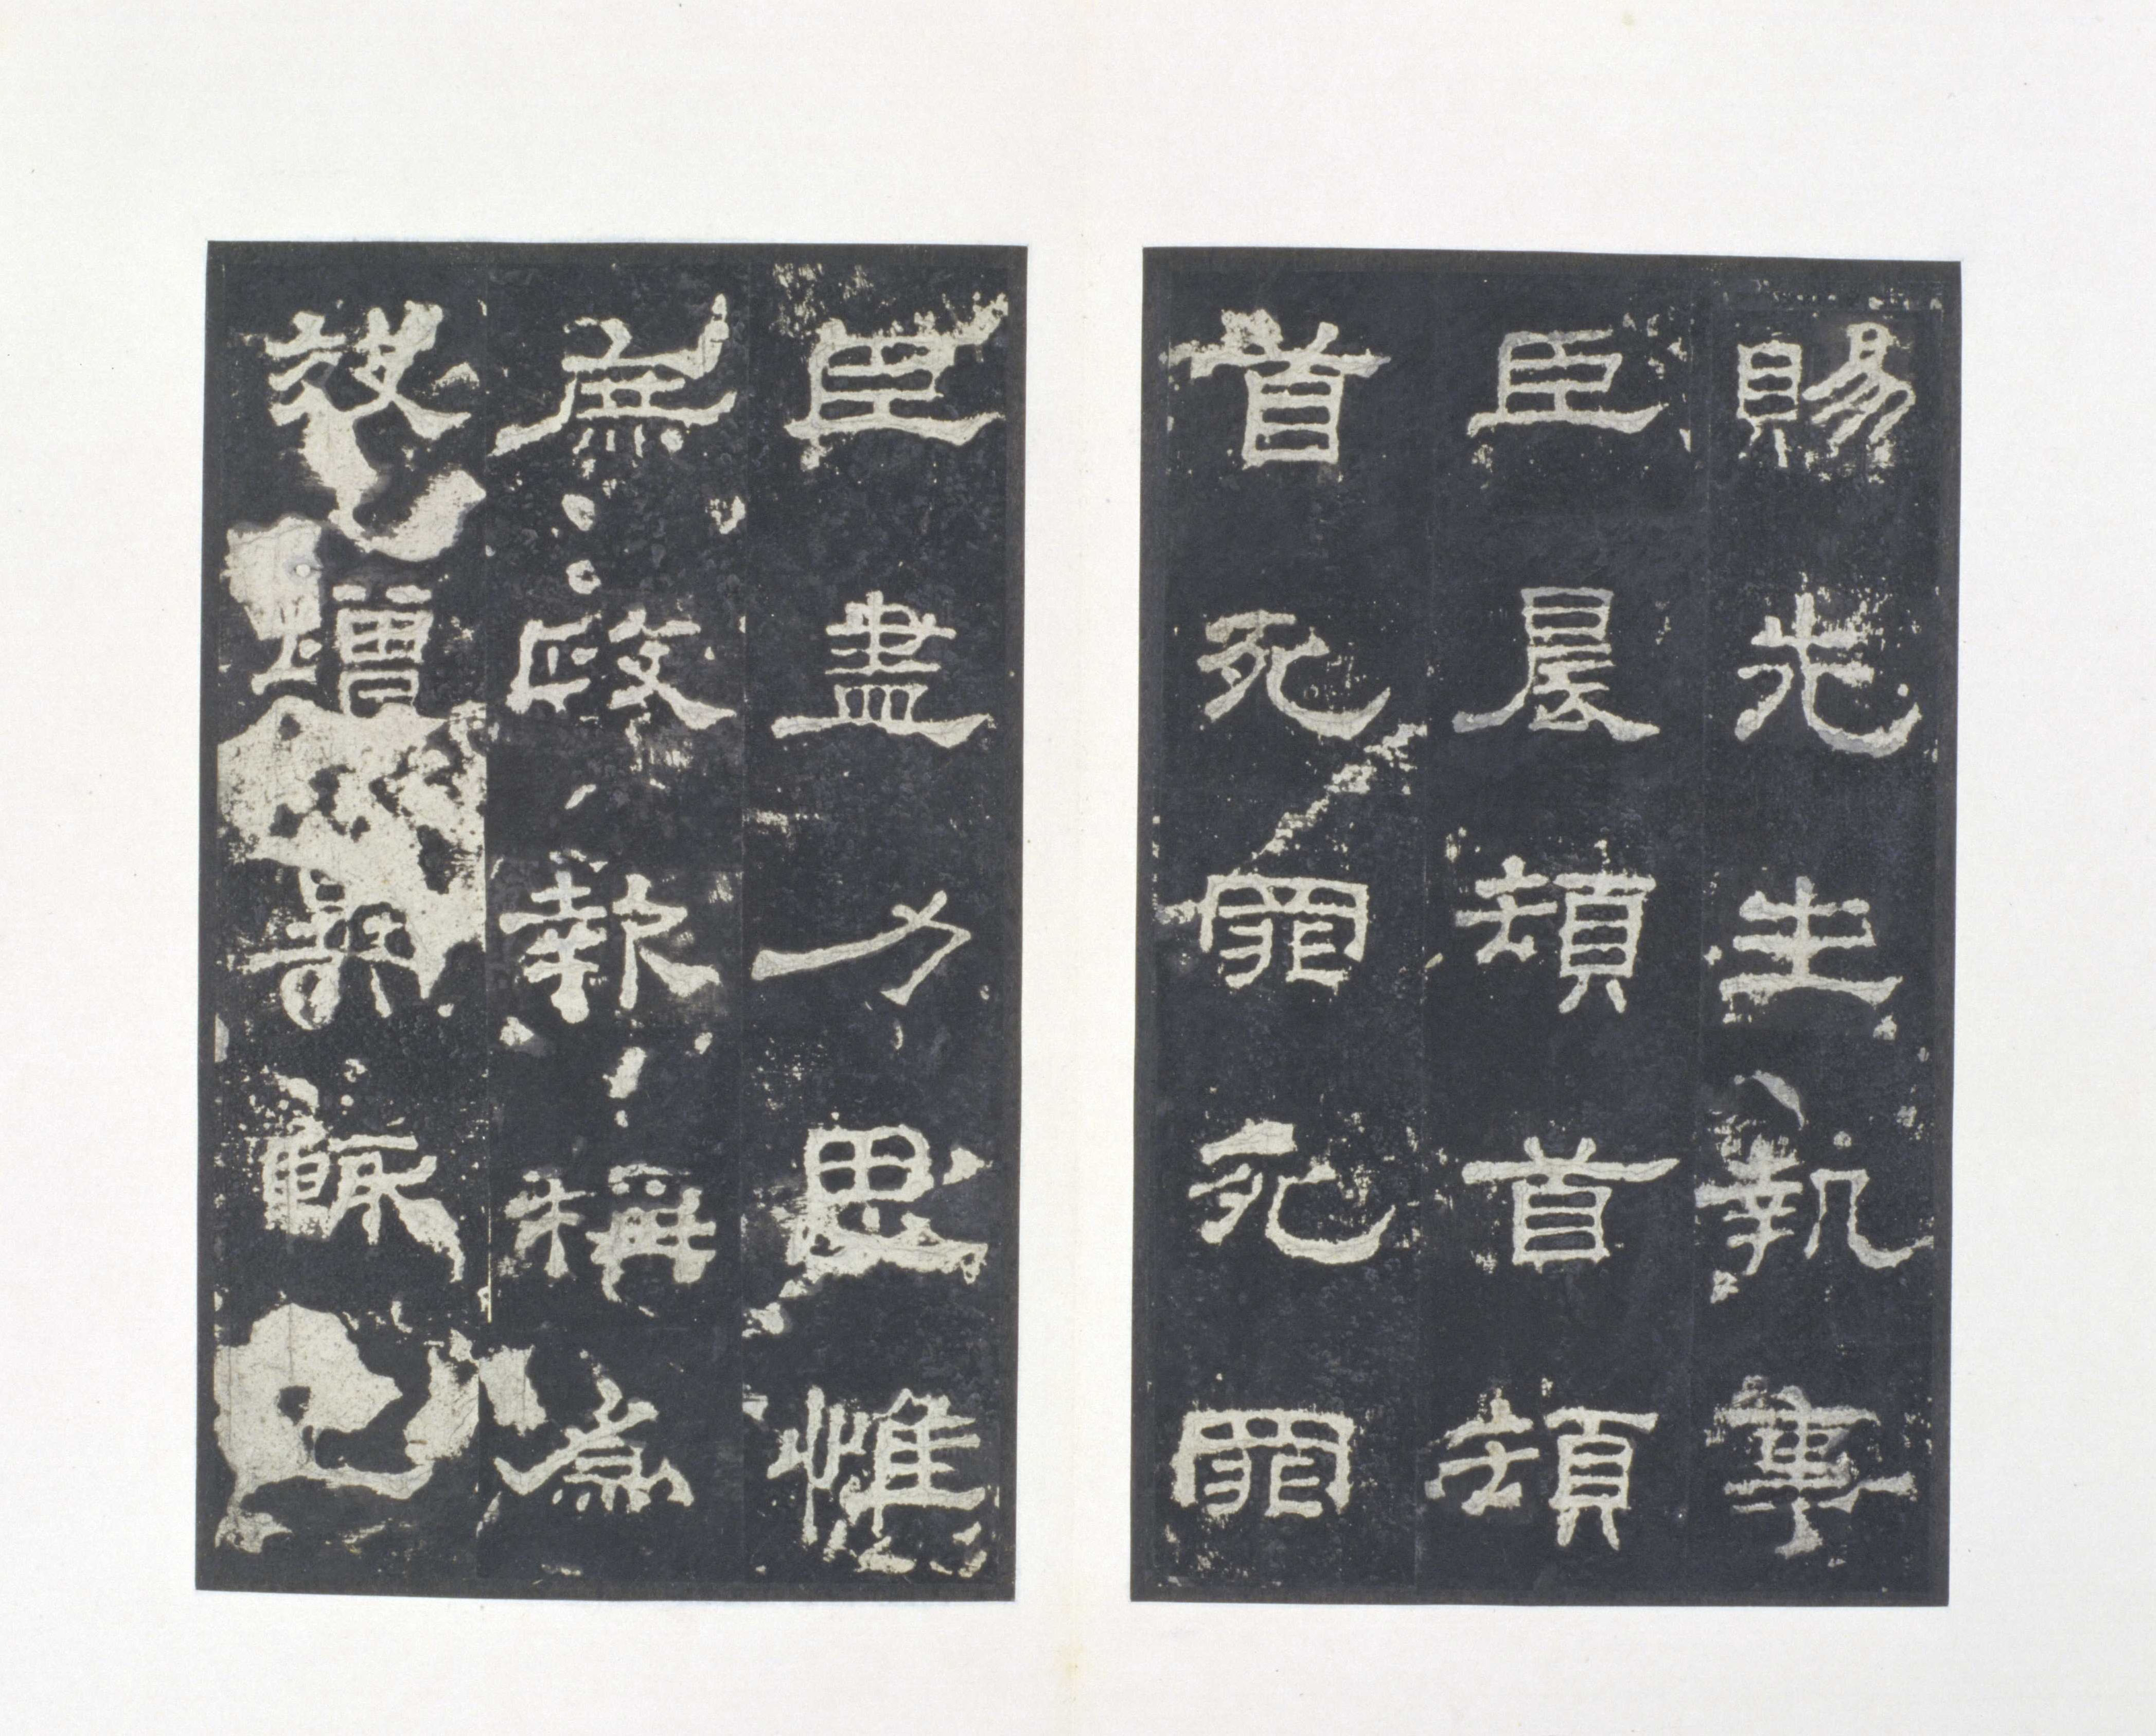 賜先生執事
臣晨頓首頓
首死罪死罪
臣盡力思惟
庶政報稱為
效增異輒